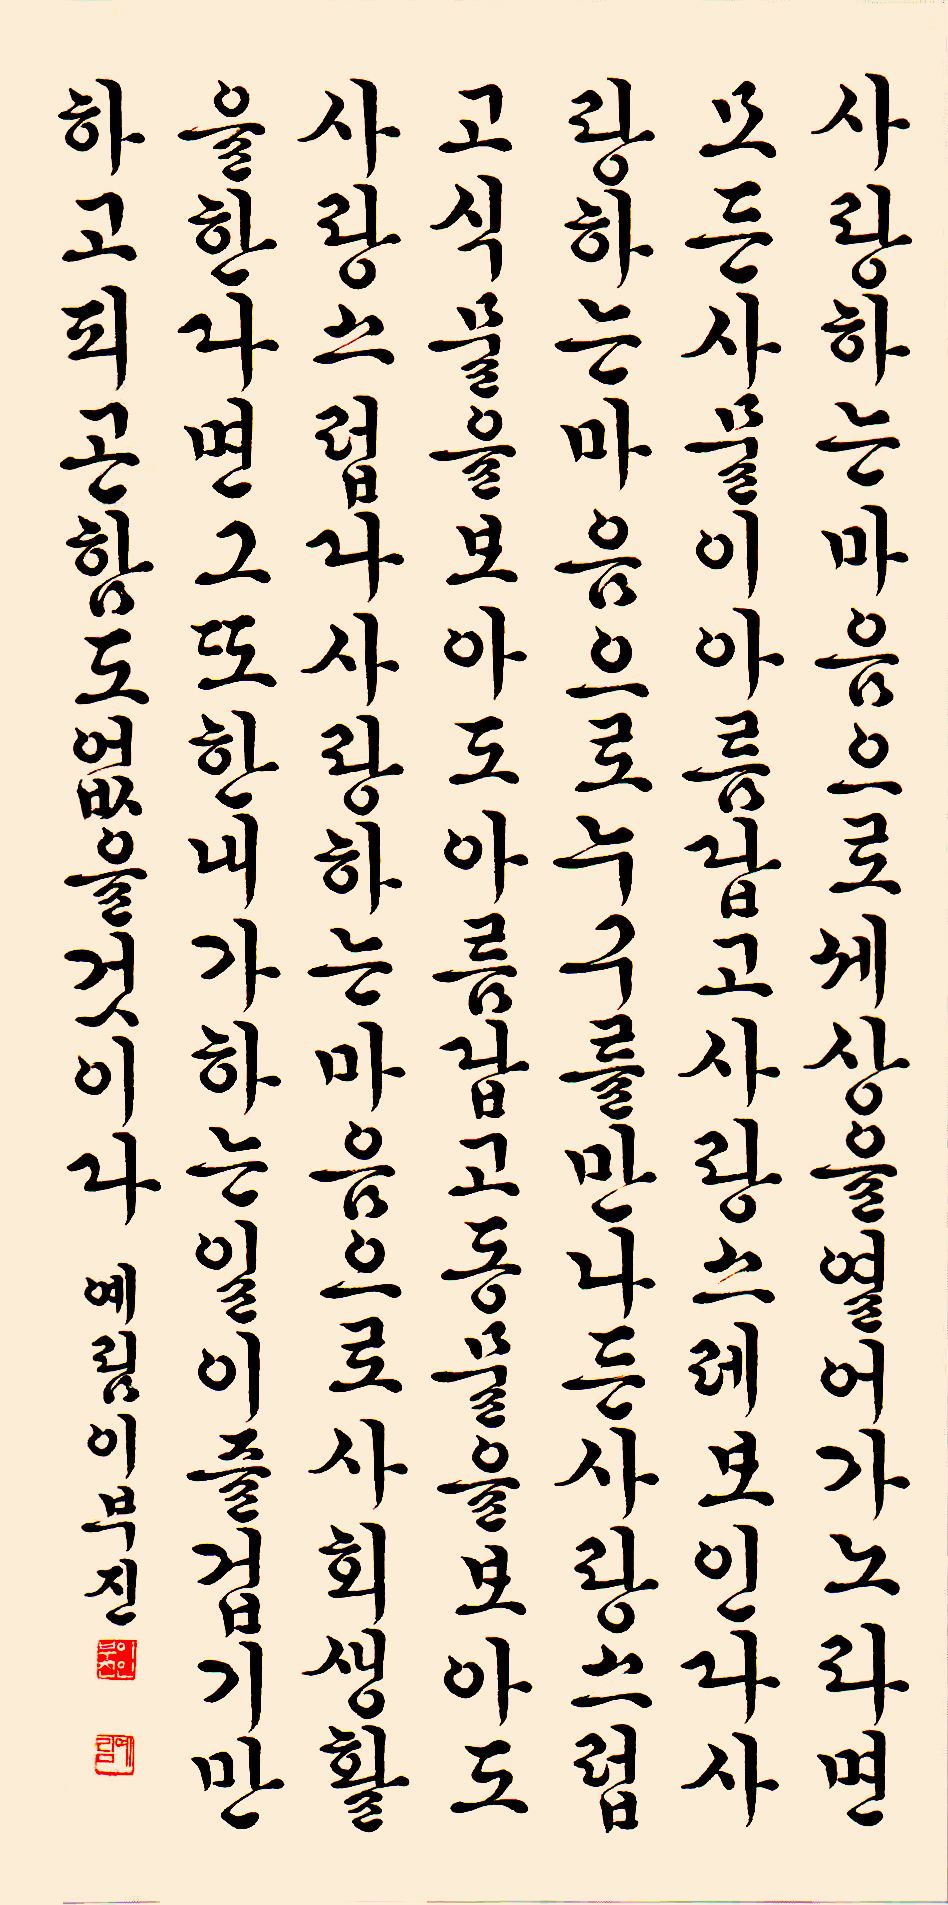 사랑하는마음으로세상을열어가노라면
모든사물이아름답고사랑스레보인다사
랑하는마음으로누구를만나든사랑스럽
고식물을보아도아름답고동물을보아도
사랑스럽다사랑하는마음으로사회생활
을한다면그또한내가하는일이즐겁기만
하고피곤함도없을것이다 예림이부진
예림